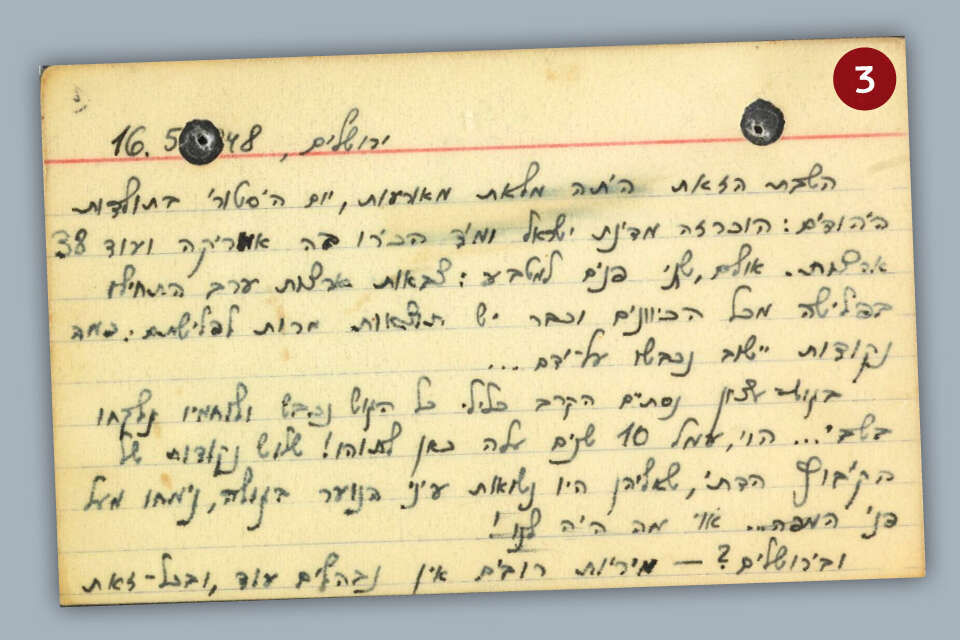 3
ירושלים, 16.5.1948
השבת הזאת היתה מלאת מאורעות, יום היסטורי בתולדות
היהודים: הוכרזה מדינת ישראל ומיד הכירו בה אמריקה ועוד 38
ארצות. אולם, שני פנים למטבע: צבאות ארצות ערב התחילו
בפלישה מכל הכיוונים וכבר יש תוצאות מרות לפלישתם: כמה
נקודות יישוב נכבשו על-ידם...
בגוש-עציון נסתיים הקרב כליל. כל הגוש נכבש ולוחמיו נלקחו
בשבי... הוי, עמל 10 שנים עלה כאן לתוהו! שלוש נקודות של
הקיבוץ הדתי, שאליהן היו נשואות עיני הנוער בגולה, נימחו מעל
פני המפה... אוי מה היה לנו!
ובירושלים? — מיריות רובים אין נבהלים עוד, ובכל-זאת